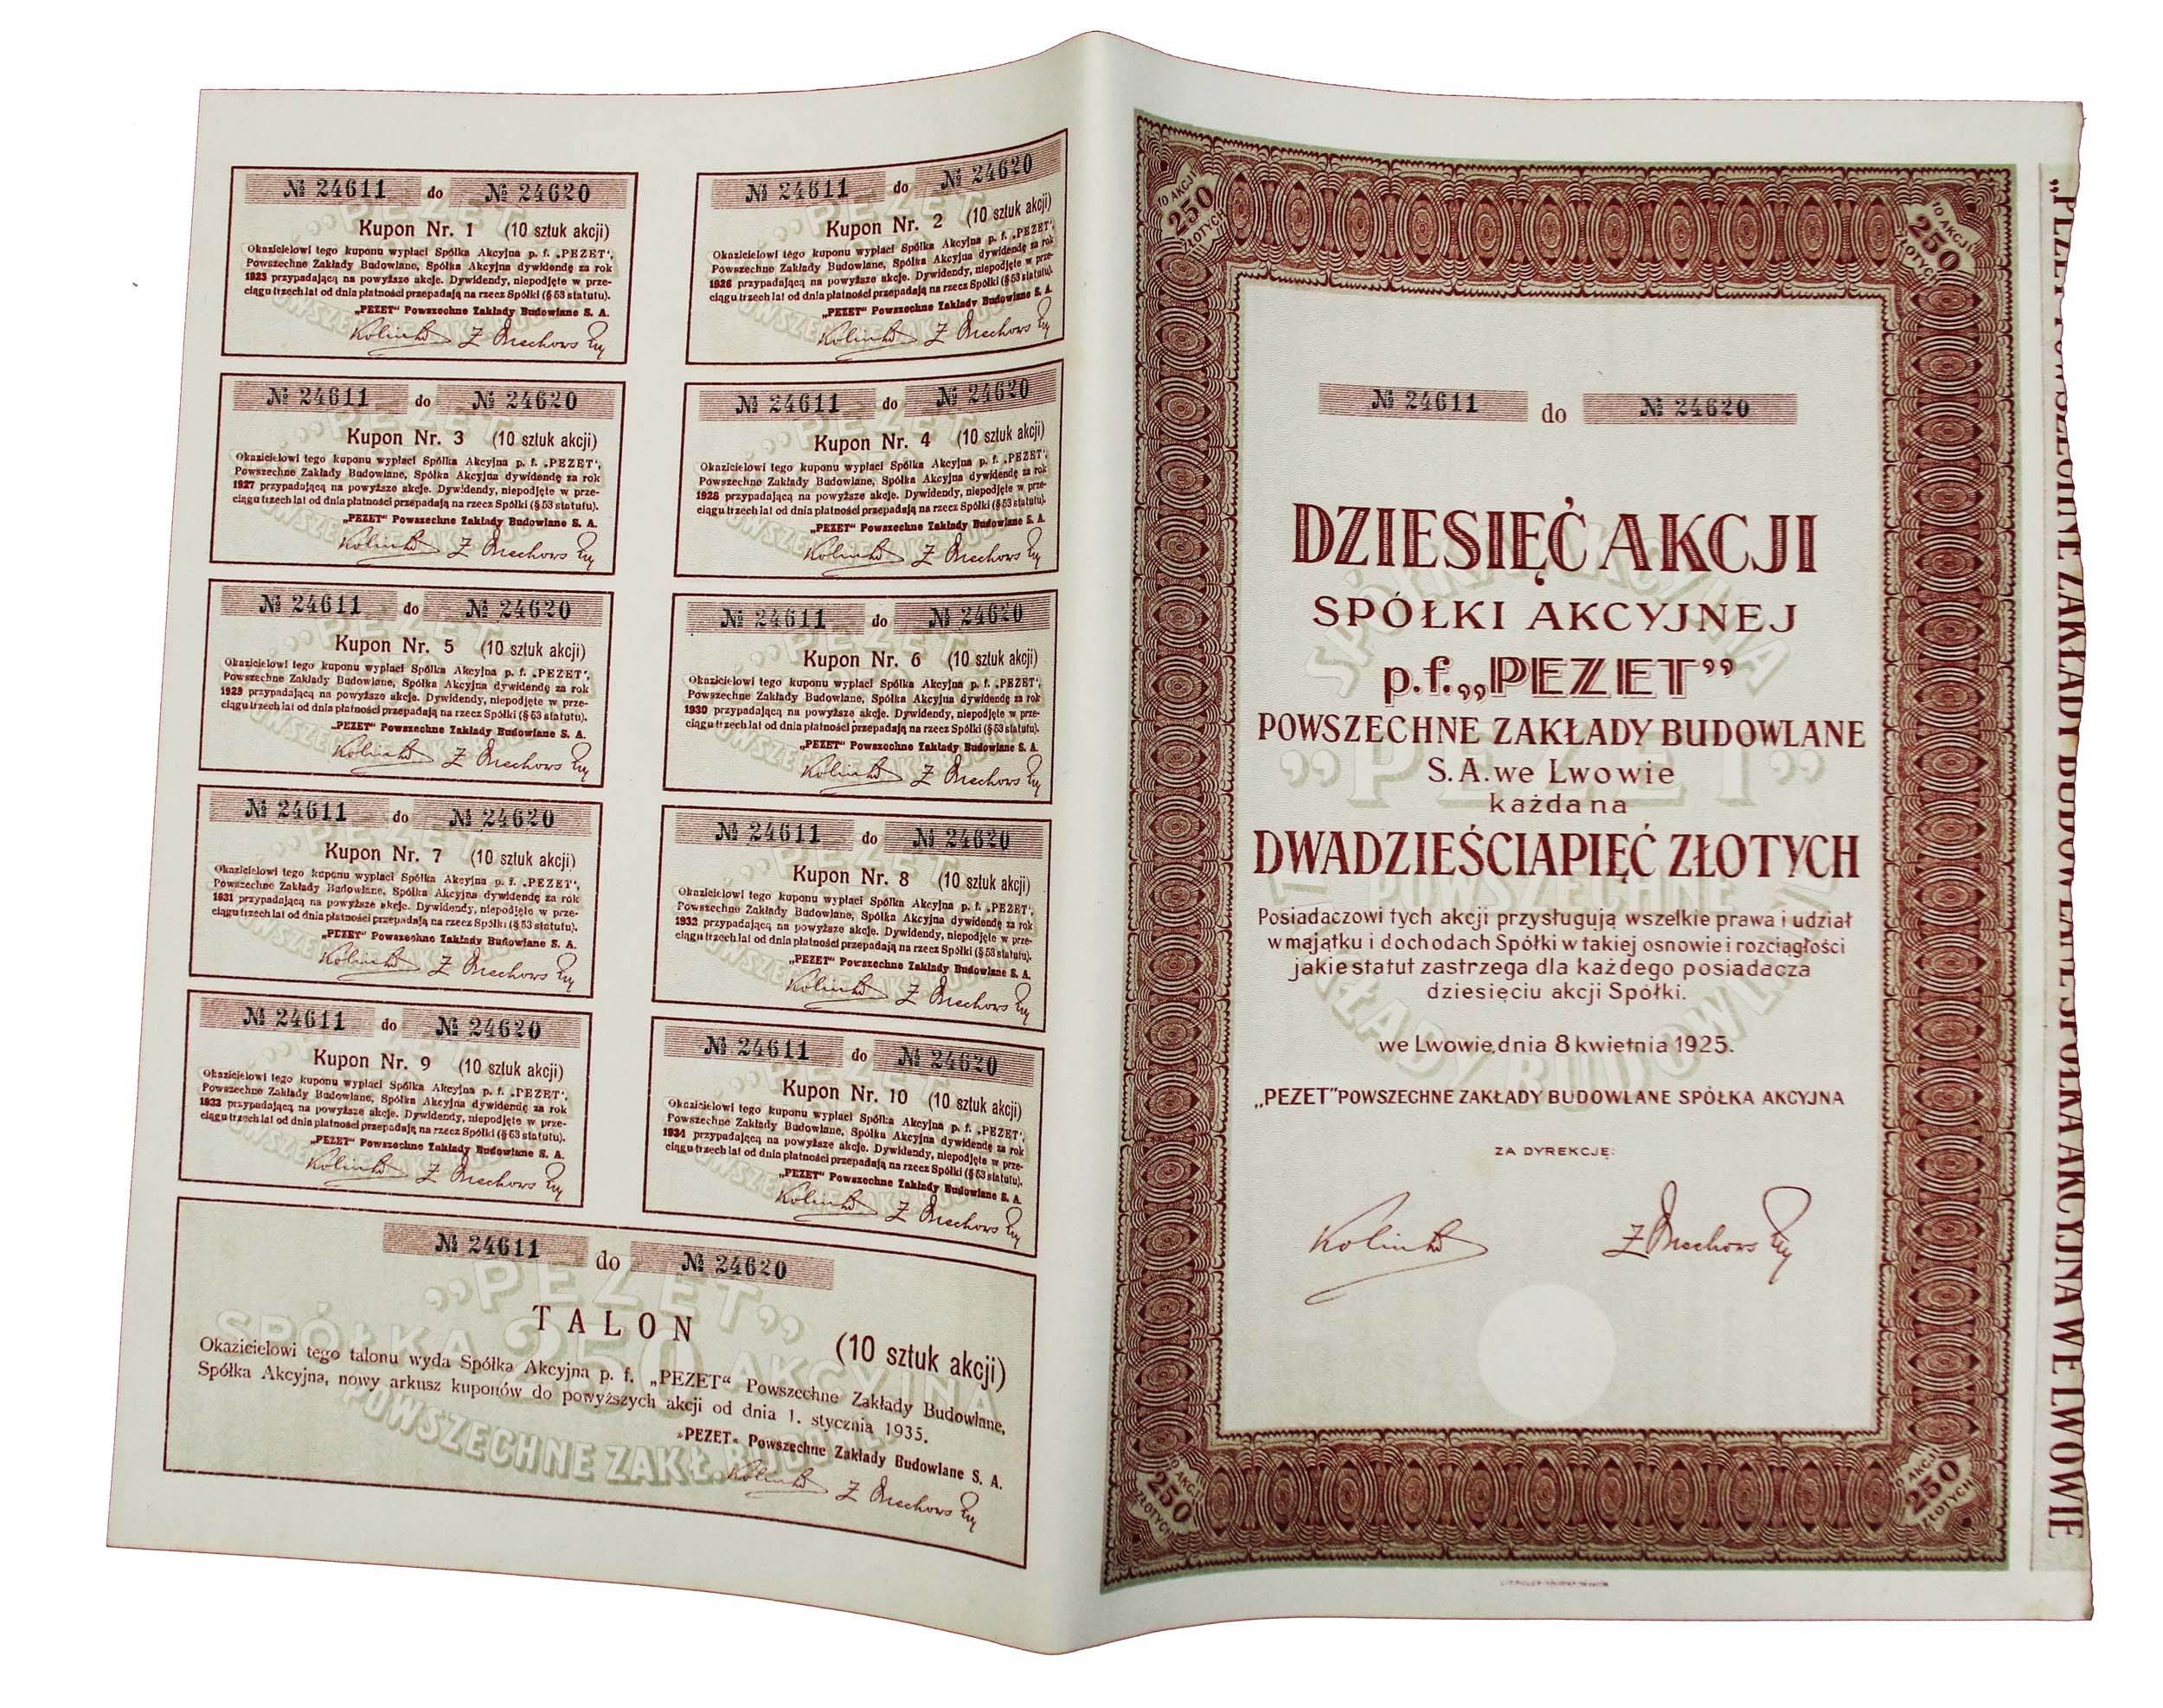 № 24611 do № 24620
Kupon Nr. 1 (10 sztuk akcji)
Okazicielowi tego kuponu wypłaci Spółka Akcyjna p. f. „PEZET”,
Powszechne Zakłady Budowlane, Spółka Akcyjna dywidendę za rok
1925 przypadającą na powyższe akcje. Dywidendy, niepodjęte w prze-
ciągu trzech lat od dnia płatności przepadają na rzecz Spółki (§ 53 statutu).
„PEZET” Powszechne Zakłady Budowlane S. A.
№ 24611 do № 24620
Kupon Nr. 2 (10 sztuk akcji)
Okazicielowi tego kuponu wypłaci Spółka Akcyjna p. f. „PEZET”,
Powszechne Zakłady Budowlane, Spółka Akcyjna dywidendę za rok
1926 przypadającą na powyższe akcje. Dywidendy, niepodjęte w prze-
ciągu trzech lat od dnia płatności przepadają na rzecz Spółki (§ 53 statutu).
„PEZET” Powszechne Zakłady Budowlane S. A.
№ 24611 do № 24620
Kupon Nr. 3 (10 sztuk akcji)
Okazicielowi tego kuponu wypłaci Spółka Akcyjna p. f. „PEZET”,
Powszechne Zakłady Budowlane, Spółka Akcyjna dywidendę za rok
1927 przypadającą na powyższe akcje. Dywidendy, niepodjęte w prze-
ciągu trzech lat od dnia płatności przepadają na rzecz Spółki (§ 53 statutu).
„PEZET” Powszechne Zakłady Budowlane S. A.
№ 24611 do № 24620
Kupon Nr. 4 (10 sztuk akcji)
Okazicielowi tego kuponu wypłaci Spółka Akcyjna p. f. „PEZET”,
Powszechne Zakłady Budowlane, Spółka Akcyjna dywidendę za rok
1928 przypadającą na powyższe akcje. Dywidendy, niepodjęte w prze-
ciągu trzech lat od dnia płatności przepadają na rzecz Spółki (§ 53 statutu).
„PEZET” Powszechne Zakłady Budowlane S. A.
№ 24611 do № 24620
Kupon Nr. 5 (10 sztuk akcji)
Okazicielowi tego kuponu wypłaci Spółka Akcyjna p. f. „PEZET”,
Powszechne Zakłady Budowlane, Spółka Akcyjna dywidendę za rok
1929 przypadającą na powyższe akcje. Dywidendy, niepodjęte w prze-
ciągu trzech lat od dnia płatności przepadają na rzecz Spółki (§ 53 statutu).
„PEZET” Powszechne Zakłady Budowlane S. A.
№ 24611 do № 24620
Kupon Nr. 6 (10 sztuk akcji)
Okazicielowi tego kuponu wypłaci Spółka Akcyjna p. f. „PEZET”,
Powszechne Zakłady Budowlane, Spółka Akcyjna dywidendę za rok
1930 przypadającą na powyższe akcje. Dywidendy, niepodjęte w prze-
ciągu trzech lat od dnia płatności przepadają na rzecz Spółki (§ 53 statutu).
„PEZET” Powszechne Zakłady Budowlane S. A.
№ 24611 do № 24620
Kupon Nr. 7 (10 sztuk akcji)
Okazicielowi tego kuponu wypłaci Spółka Akcyjna p. f. „PEZET”,
Powszechne Zakłady Budowlane, Spółka Akcyjna dywidendę za rok
1931 przypadającą na powyższe akcje. Dywidendy, niepodjęte w prze-
ciągu trzech lat od dnia płatności przepadają na rzecz Spółki (§ 53 statutu).
„PEZET” Powszechne Zakłady Budowlane S. A.
№ 24611 do № 24620
Kupon Nr. 8 (10 sztuk akcji)
Okazicielowi tego kuponu wypłaci Spółka Akcyjna p. f. „PEZET”,
Powszechne Zakłady Budowlane, Spółka Akcyjna dywidendę za rok
1932 przypadającą na powyższe akcje. Dywidendy, niepodjęte w prze-
ciągu trzech lat od dnia płatności przepadają na rzecz Spółki (§ 53 statutu).
„PEZET” Powszechne Zakłady Budowlane S. A.
№ 24611 do № 24620
Kupon Nr. 9 (10 sztuk akcji)
Okazicielowi tego kuponu wypłaci Spółka Akcyjna p. f. „PEZET”,
Powszechne Zakłady Budowlane, Spółka Akcyjna dywidendę za rok
1933 przypadającą na powyższe akcje. Dywidendy, niepodjęte w prze-
ciągu trzech lat od dnia płatności przepadają na rzecz Spółki (§ 53 statutu).
„PEZET” Powszechne Zakłady Budowlane S. A.
№ 24611 do № 24620
Kupon Nr. 10 (10 sztuk akcji)
Okazicielowi tego kuponu wypłaci Spółka Akcyjna p. f. „PEZET”,
Powszechne Zakłady Budowlane, Spółka Akcyjna dywidendę za rok
1934 przypadającą na powyższe akcje. Dywidendy, niepodjęte w prze-
ciągu trzech lat od dnia płatności przepadają na rzecz Spółki (§ 53 statutu).
„PEZET” Powszechne Zakłady Budowlane S. A.
№ 24611 do № 24620
TALON
(10 sztuk akcji)
Okazicielowi tego talonu wyda Spółka Akcyjna p. f. „PEZET“ Powszechne Zakłady Budowlane,
Spółka Akcyjna, nowy arkusz kuponów do powyższych akcji od dnia 1. stycznia 1935.
»PEZET« Powszechne Zakłady Budowlane S. A.
„PEZET”
SPÓŁKA 250 AKCYJNA
POWSZECHNE ZAKŁ. BUDOWL.
10 AKCJI
250
ZŁOTYCH
10 AKCJI
250
ZŁOTYCH
№ 24611 do № 24620
DZIESIĘĆ AKCJI
SPÓŁKI AKCYJNEJ
p.f. „PEZET”
POWSZECHNE ZAKŁADY BUDOWLANE
S.A. we Lwowie
każda na
DWADZIEŚCIAPIĘĆ ZŁOTYCH
Posiadaczowi tych akcji przysługują wszelkie prawa i udział
w majątku i dochodach Spółki w takiej osnowie i rozciągłości
jakie statut zastrzega dla każdego posiadacza
dziesięciu akcji Spółki.
we Lwowie, dnia 8 kwietnia 1925.
„PEZET” POWSZECHNE ZAKŁADY BUDOWLANE SPÓŁKA AKCYJNA
ZA DYREKCJĘ:
SPÓŁKA AKCYJNA
„PEZET”
POWSZECHNE
ZAKŁADY BUDOWLANE
10 AKCJI
250
ZŁOTYCH
10 AKCJI
250
ZŁOTYCH
„PEZET” POWSZECHNE ZAKŁADY BUDOWLANE SPÓŁKA AKCYJNA WE LWOWIE